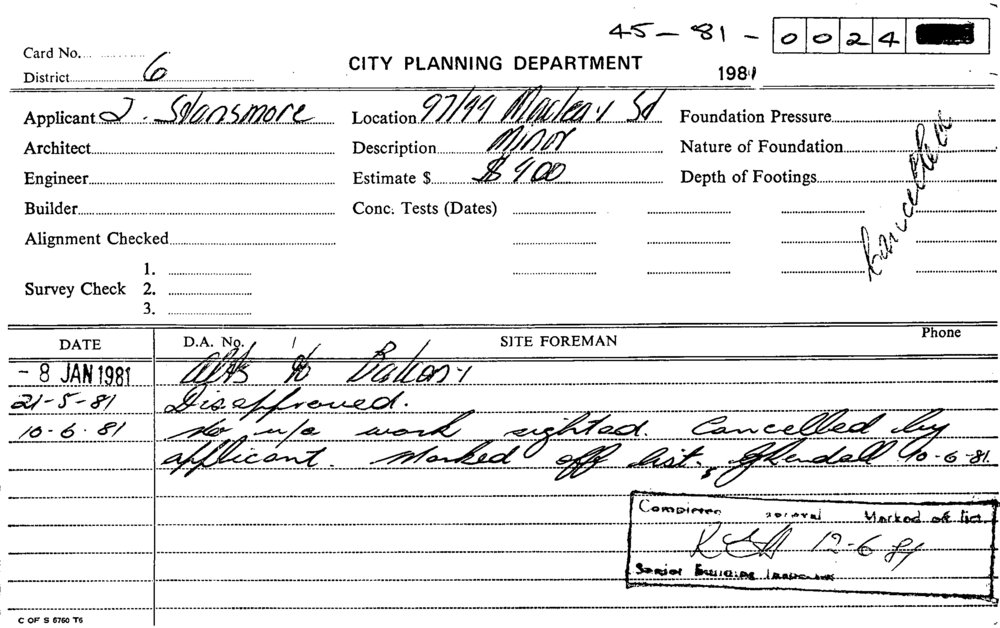 45-81-0024
Card No.
District 6
CITY PLANNING DEPARTMENT
1981
Applicant J. Stansmore
Location 97/99 Macleay St
Foundation Pressure
Architect
Description Minor
Nature of Foundation
Engineer
Estimate $ $900
Depth of Footings
Cancelled
Builder
Conc. Tests (Dates)
Alignment Checked
1.
Survey Check 2.
3.
DATE
D.A. No.
SITE FOREMAN
Phone
- 8 JAN 1981 Alts to Balcony
21-5-81 Disapproved.
10.6.81 No u/a work sighted. Cancelled by
applicant. Marked off list. 10-6-81.
Completed Marked off list
12-6-81
Senior Building Inspector
C OF S 6760 T6